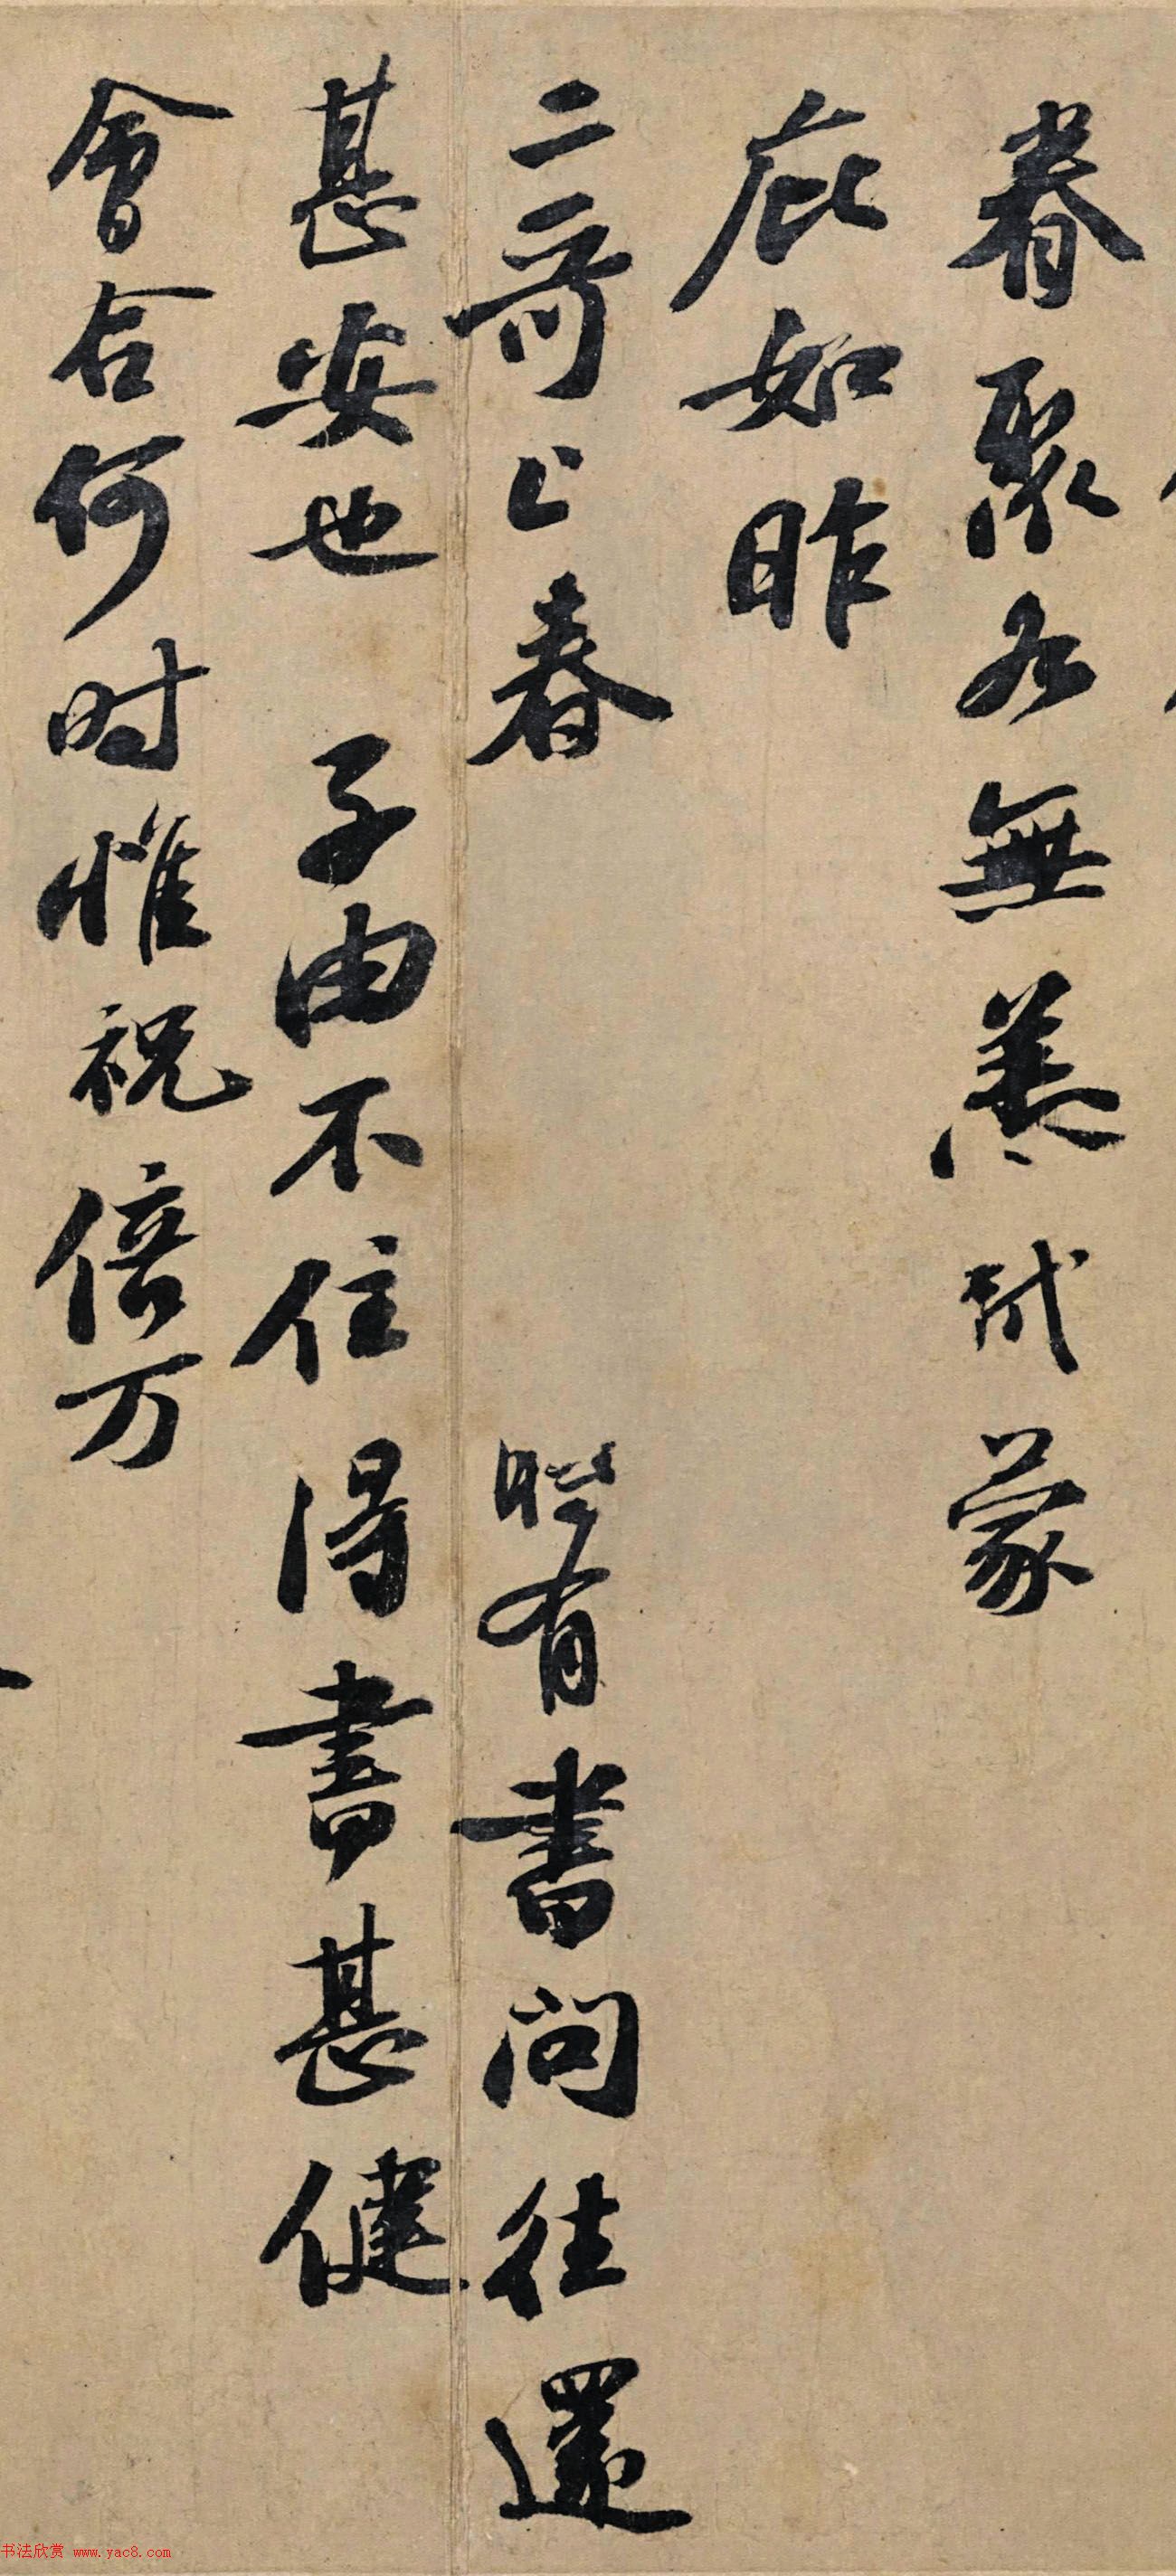 眷聚各無恙軾蒙
庇如昨
二哥上春 時有書問往還
甚安也 子由不住得書甚健
會合何时惟祝倍万
书法欣赏 www.yac8.com